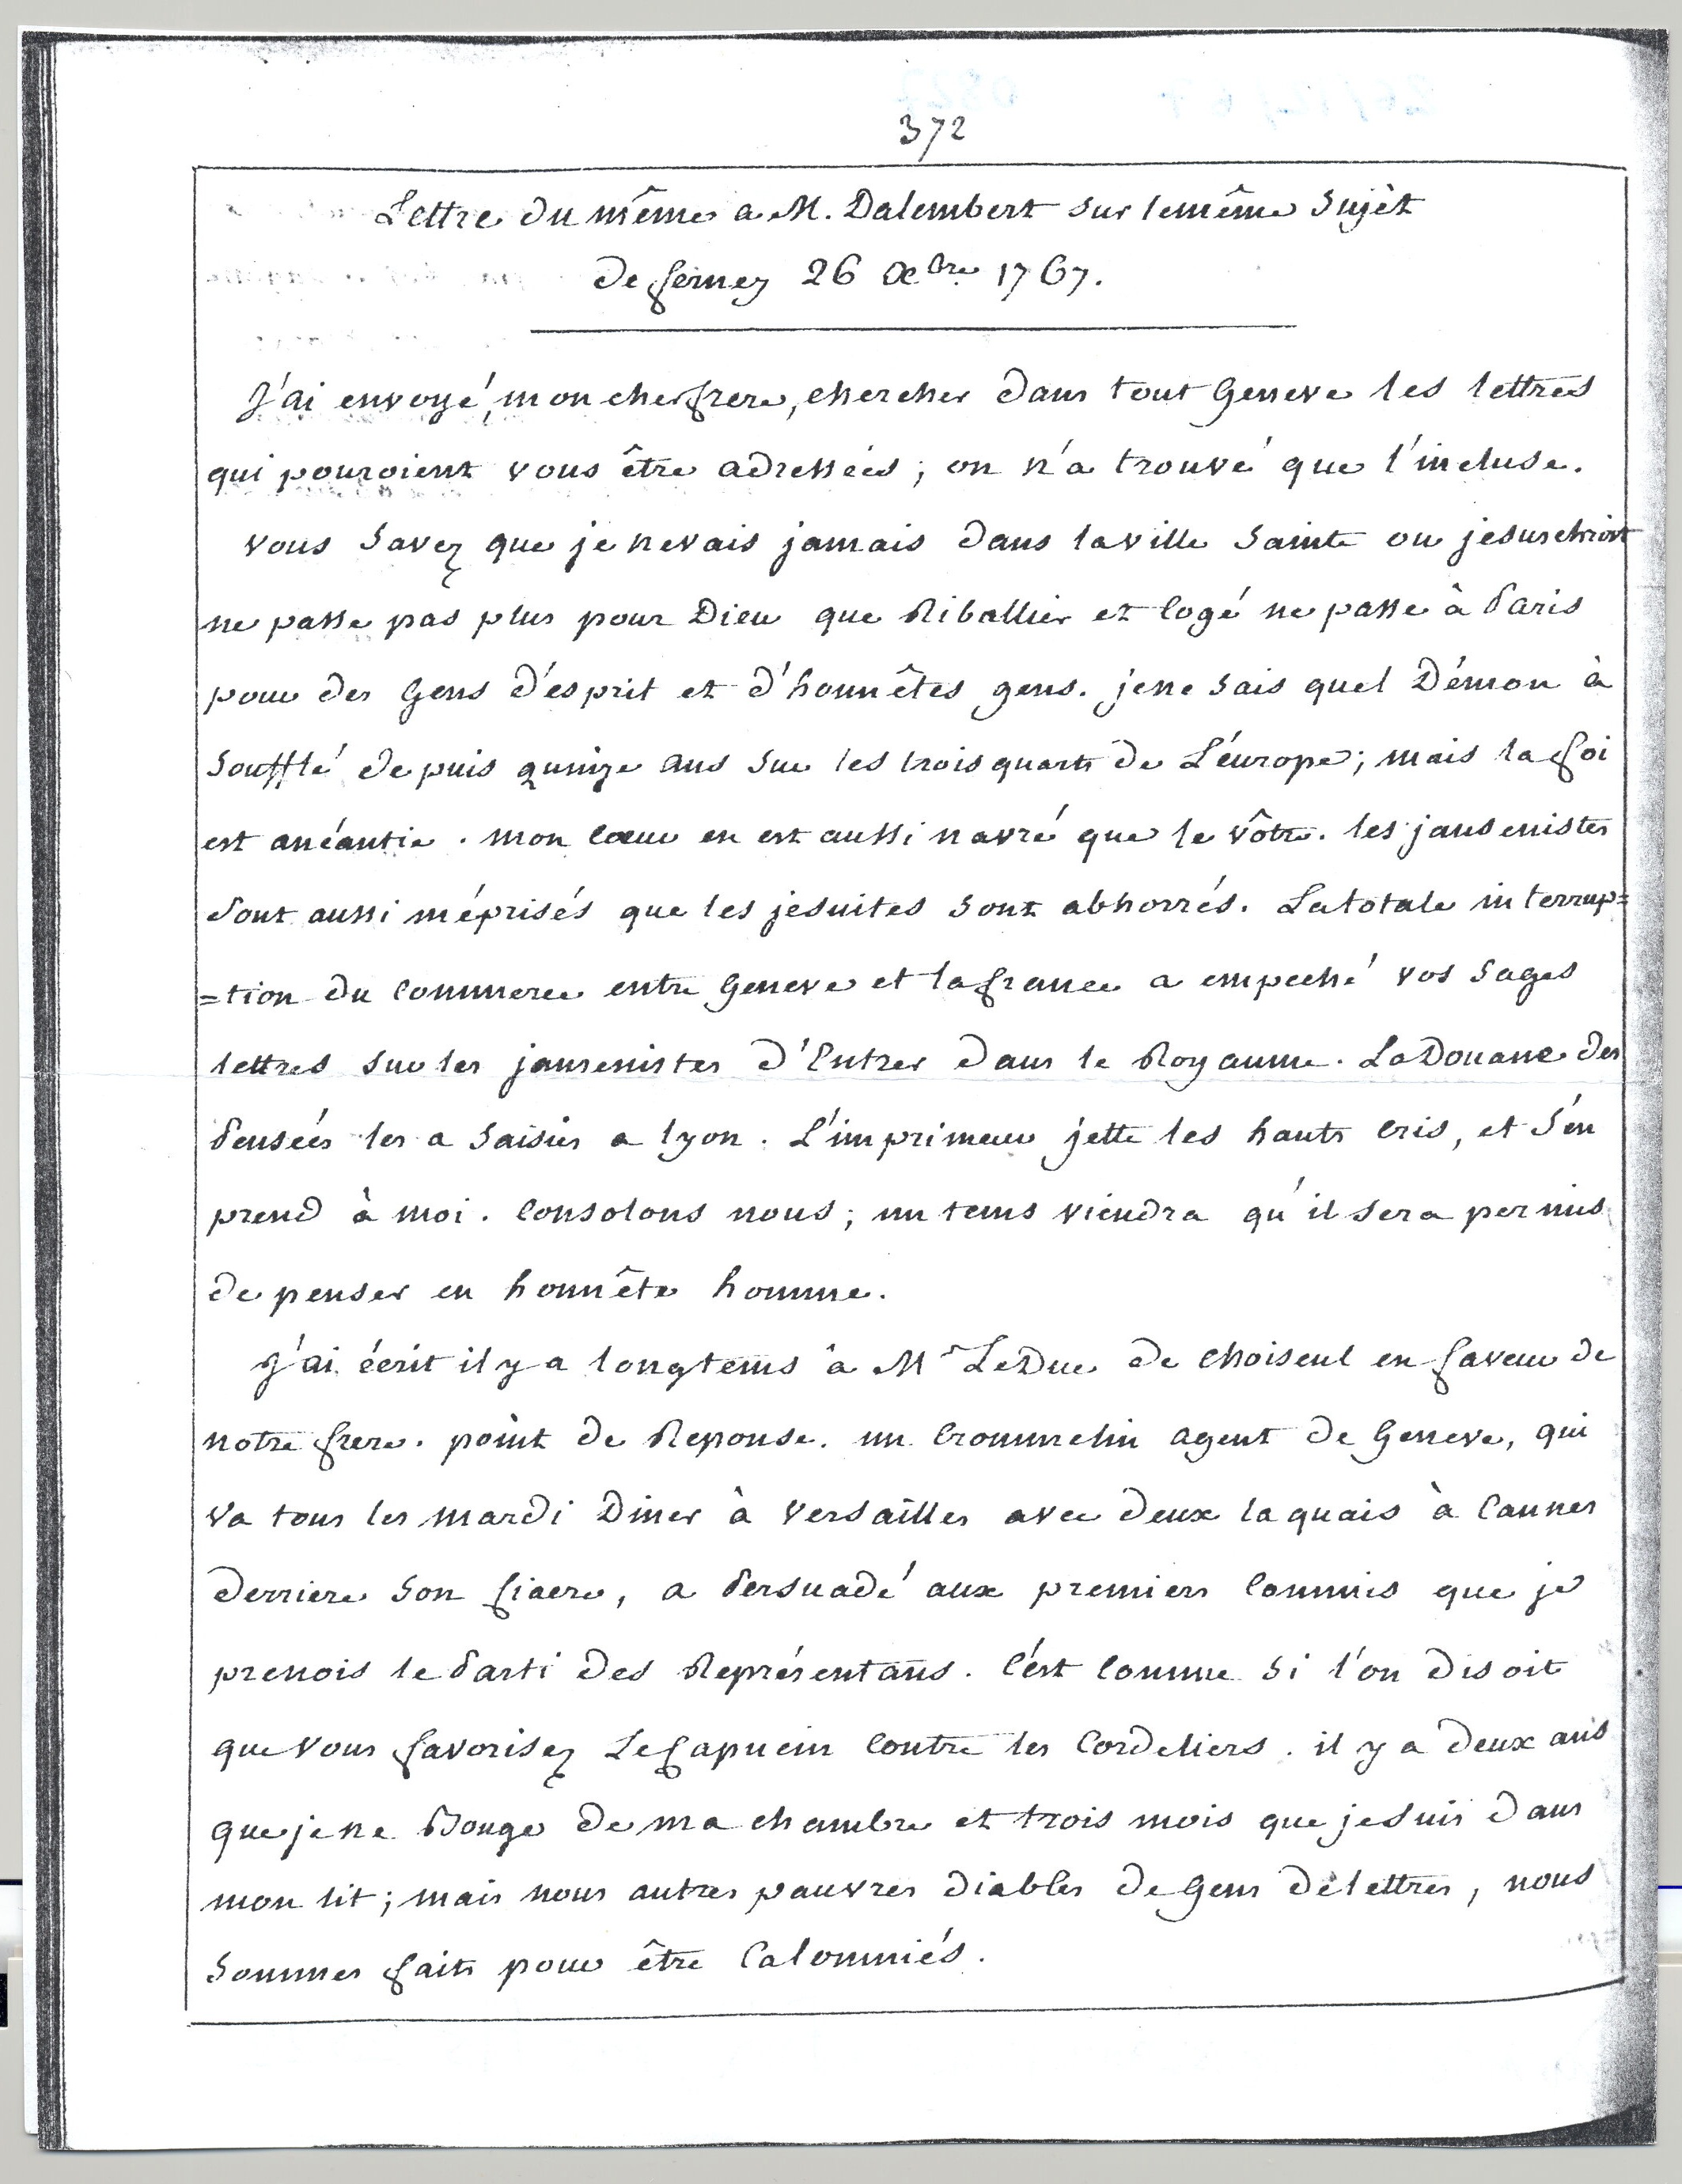 372
Lettre du même a M. Dalembert sur le même Sujèt
de ferney 26 Xbre 1767.
J'ai envoyé, mon cher frere, chercher dans tout Geneve les lettres
qui pouroient vous être adressées ; on n'a trouvé que l'incluse.
vous Savez que je ne vais jamais dans la ville Sainte ou jesus christ
ne passe pas plus pour Dieu que Riballier et Cogé ne passe à Paris
pour des Gens d'esprit et d'honnêtes gens. je ne Sais quel Démon à
Soufflé depuis quinze ans sur les trois quarts de L'éurope ; mais la foi
est anéantie. mon coeur en est aussi navré que le vôtre. les jansenistes
Sont aussi méprisés que les jesuites Sont abhorrés. La totale interrup=
=tion du Commerce entre Geneve et la france a empeché vos Sages
lettres sur les jansenistes d'Entrer dans le Royaume. La Douane des
Pensées les a Saisies a lyon. L'imprimeur jette les hauts Cris, et S'en
prend à moi. Consolons nous ; un tems viendra qu'il sera permis
de penser en honnête homme.
J'ai écrit il y a longtems à Mr Le Duc de Choiseul en faveur de
notre frere. point de Reponse. un Crommelin agent de Geneve, qui
va tous les mardi Diner à Versailles avec deux laquais à Cannes
derriere Son fiacre, a Persuadé aux premiers Commis que je
prenois le Parti des Représentans. C'est Comme Si l'on disoit
que vous favorisez Le Capucin Contre les Cordeliers. il y a deux ans
que je ne Bouge de ma chambre et trois mois que je suis dans
mon lit ; mais nous autres pauvres diables de Gens de lettres, nous
Sommes faits pour être Calomniés.